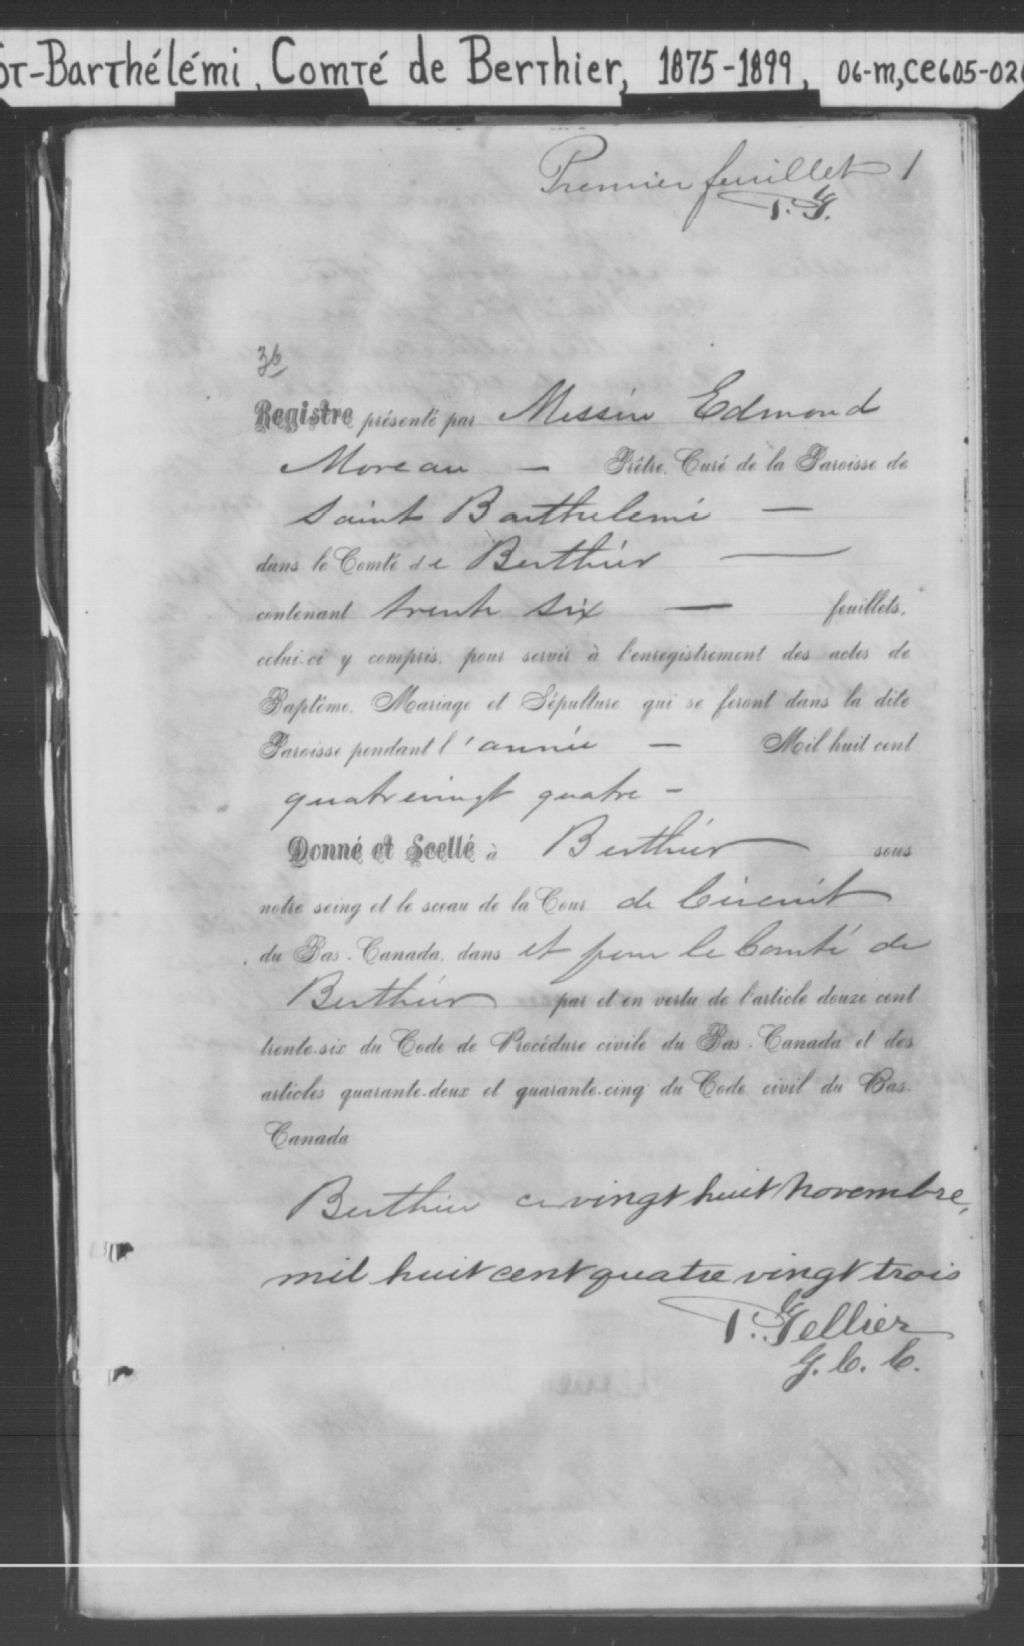 St-Barthélémi, Comté de Berthier, 1875-1899, 06-m,ce605-02
Premier feuillet 1
T. G.
36
Registre présenté par Messire Edmond
Moreau — Prêtre, Curé de la Paroisse de
Saint Barthelemi —
dans le Comté de Berthier —
contenant trente six — feuillets,
celui-ci y compris, pour servir à l'enregistrement des actes de
Baptême, Mariage et Sépulture qui se feront dans la dite
Paroisse pendant l'année — Mil huit cent
quatrevingt quatre -
Donné et Scellé à Berthier sous
notre seing et le sceau de la Cour de Circuit
du Bas-Canada, dans et pour le Comté de
Berthier par et en vertu de l'article douze cent
trente-six du Code de Procédure civile du Bas-Canada et des
articles quarante-deux et quarante-cinq du Code civil du Bas-
Canada
Berthier ce vingt huit novembre,
mil huit cent quatre vingt trois
Tellier
G. C. C.